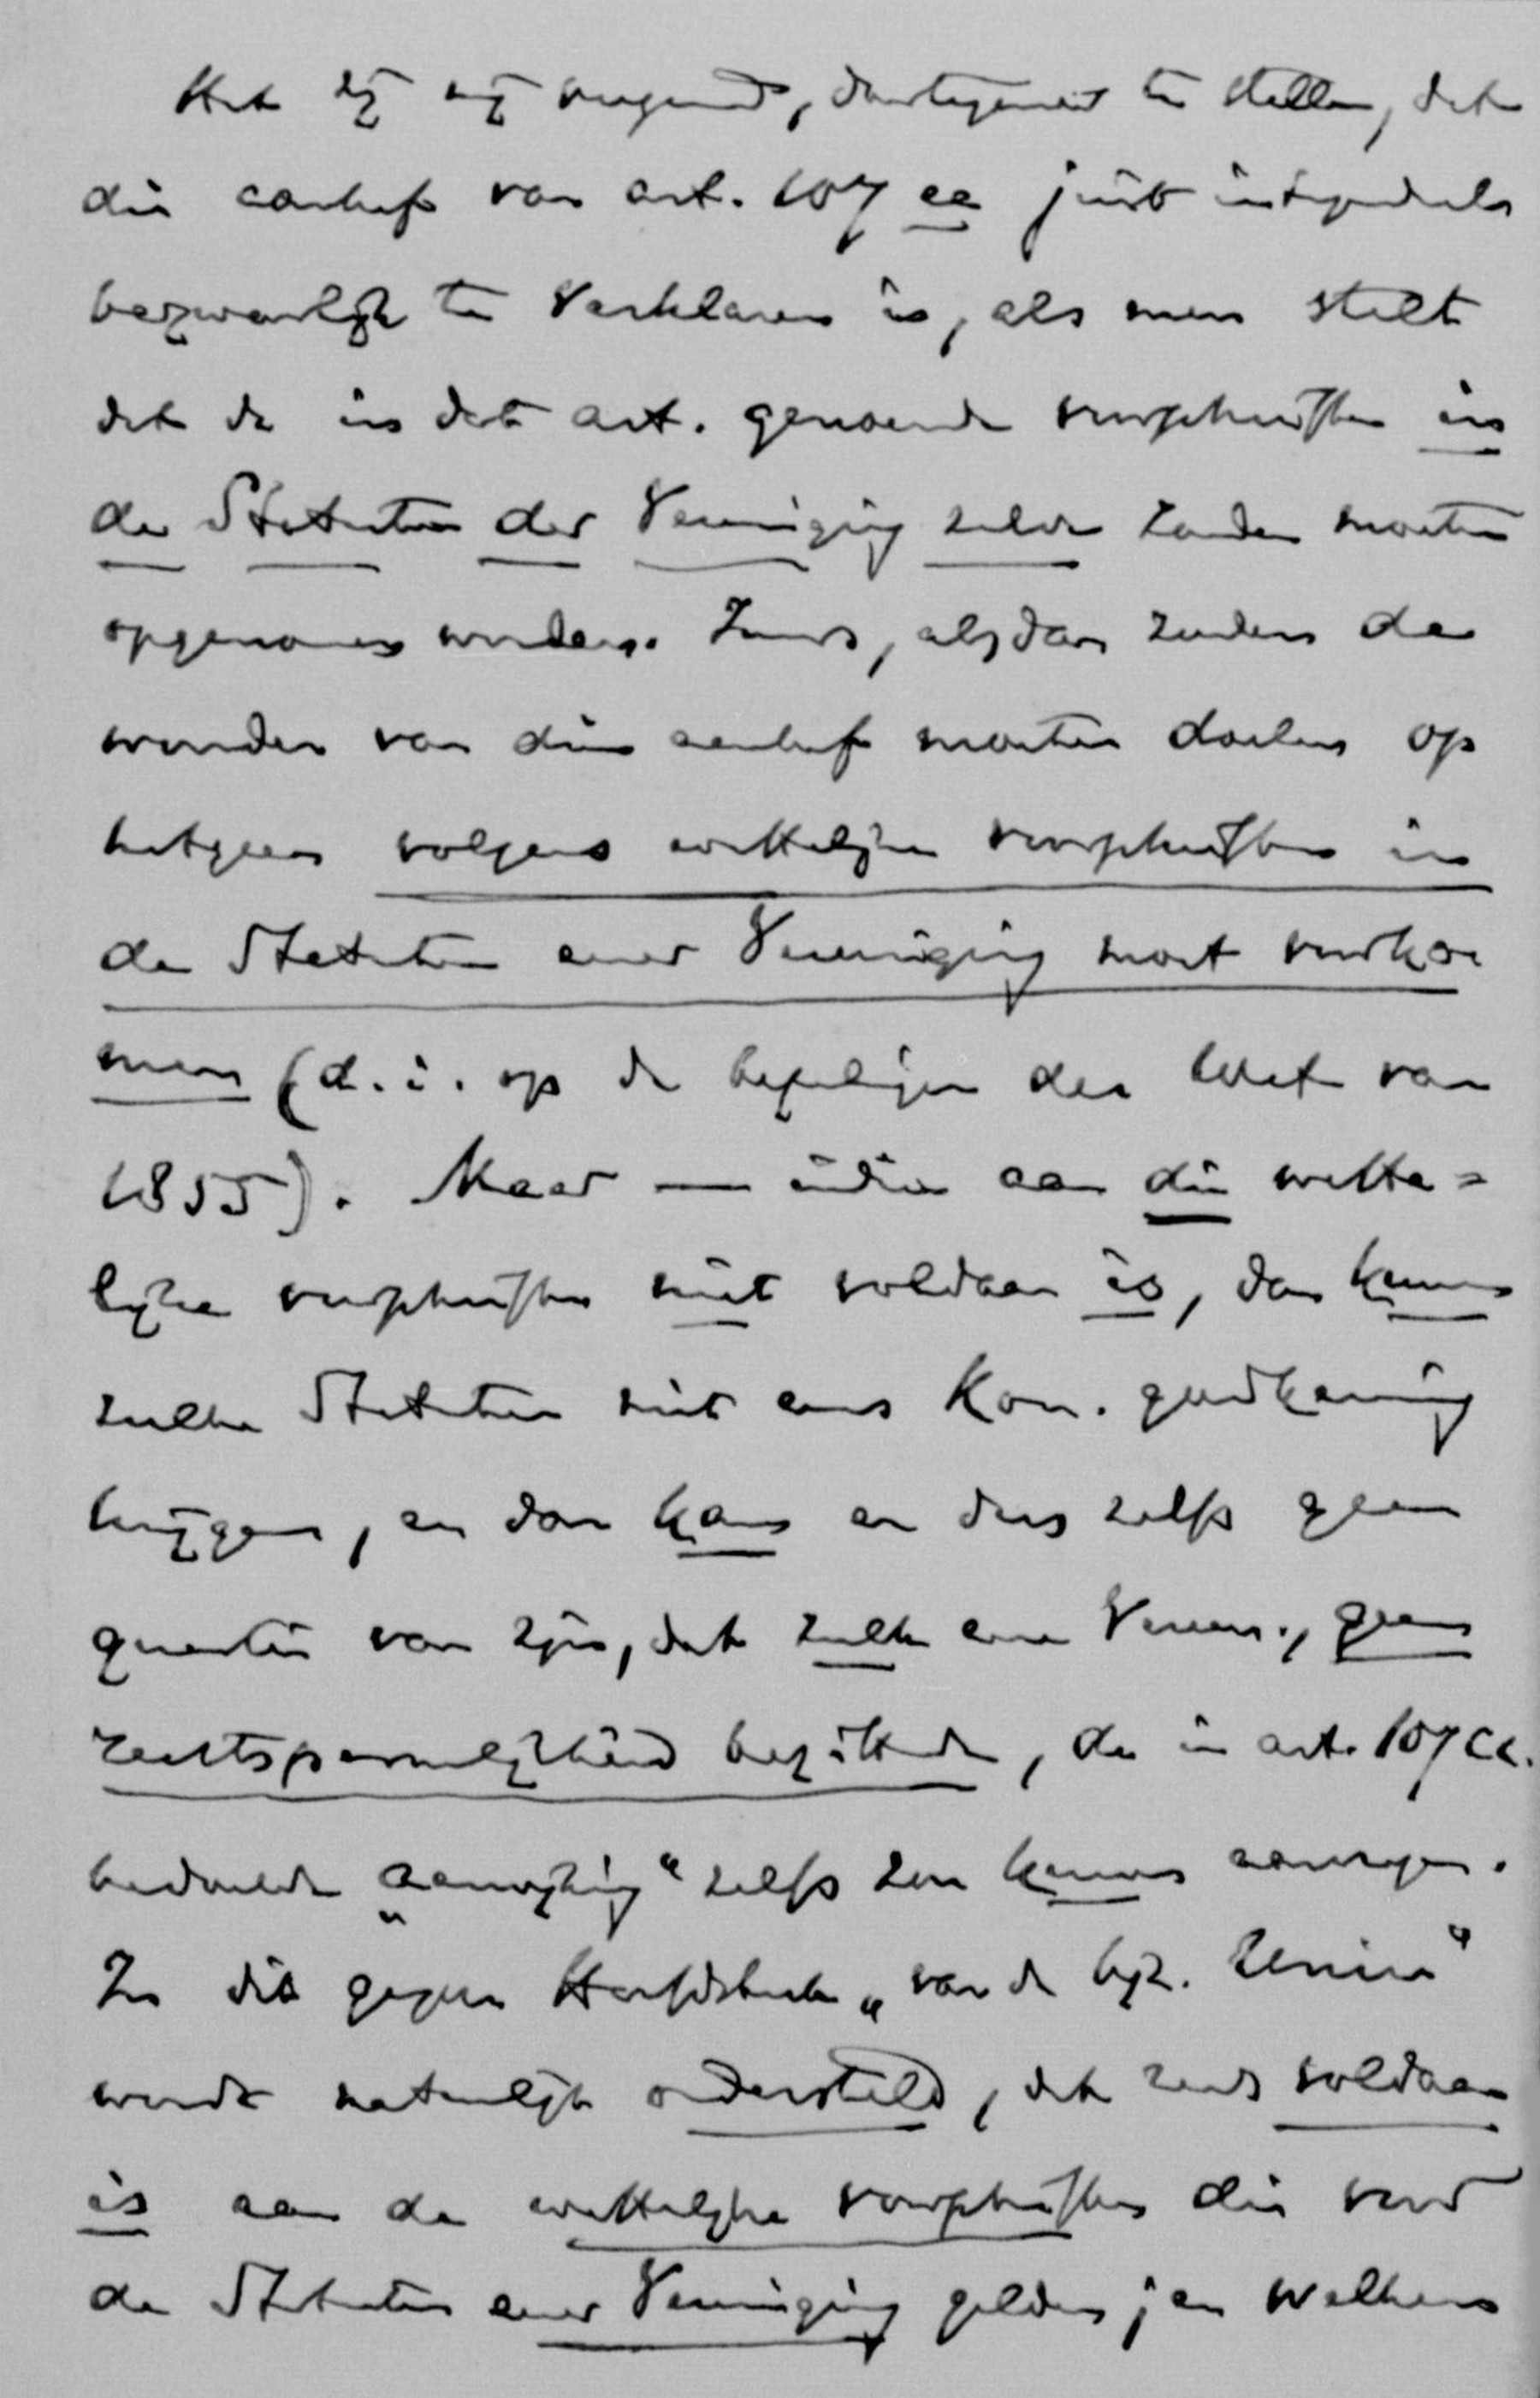 Het zij mij vergund, daartegenover te stellen, dat
die aanhef van art. 107 ee juist integendeel
bezwaarlijk te verklaren is, als men stelt
dat de in dat art. genoemde voorschriften in
de Statuten der Vereeniging zelve zouden moeten
opgenomen worden. Immers, alsdan zouden de
woorden van dien aanhef moeten doelen op
hetgeen volgens wettelijke voorschriften in
de Statuten eener Vereeniging moet voorko
men (d.i. op de bepalingen der Wet van
1855). Maar — indien aan die wette=
lijke voorschriften niet voldaan is, dan kunnen
zulke Statuten niet eens Kon. goedkeuring
krijgen, en dan kan er dus zelfs geen
quaestie van zijn, dat zulk eene Vereen., geen
rechtspersoonlijkheid bezittende, de in art. 107 ee.
bedoelde „aanwijzing“ zelfs zou kunnen aanvragen.
In dit gegeven Hoofdstuk „van de bijz. Univn“
wordt natuurlijk ondersteld, dat reeds voldaan
is aan de wettelijke voorschriften die voor
de Statuten eener Vereeniging gelden; en welkens